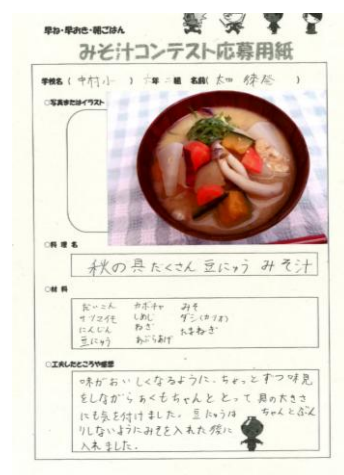 早ね・早おき・朝ごはん
みそ汁コンテスト応募用紙
学校名（中村小）六年二組 名前（太田
○写真またはイラスト
○料理名
秋の具だくさん豆にゅうみそ汁
○材料
だいこん カボチャ みそ
サツマイモ しめじ ダシ(カツオ)
にんじん ねぎ たまねぎ
豆にゅう あぶらあげ
○工夫したところや感想
味がおいしくなるように、ちょっとずつ味見
をしながらあくもちゃんととって具の大きさ
にも気を付けました。豆にゅうは ちゃんとぶん
りしないようにみそを入れた後に
入れました。